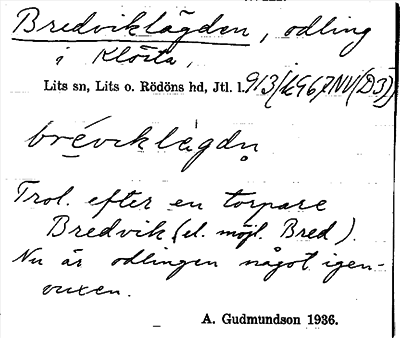 Bredviklägden, odling
i Klösta,
Lits sn, Lits o. Rödöns hd, Jtl. l. 913/
bréviklägdn̥
Trol. efter en torpare
Bredvik (el. möjl. Bred).
Nu är odlingen något igen-
vuxen.
A. Gudmundson 1936.